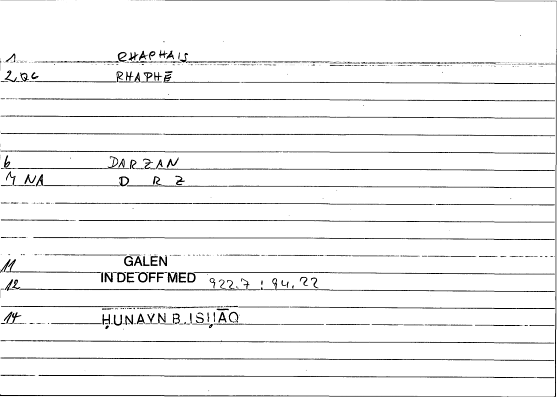 1 RHAPHAIS
2,QG RHAPHĒ
6 DARZAN
7 NA D R Z
11 GALEN
IN DE OFF MED
12 922.7 : 94.22
14 ḤUNAYN B. ISḤĀQ